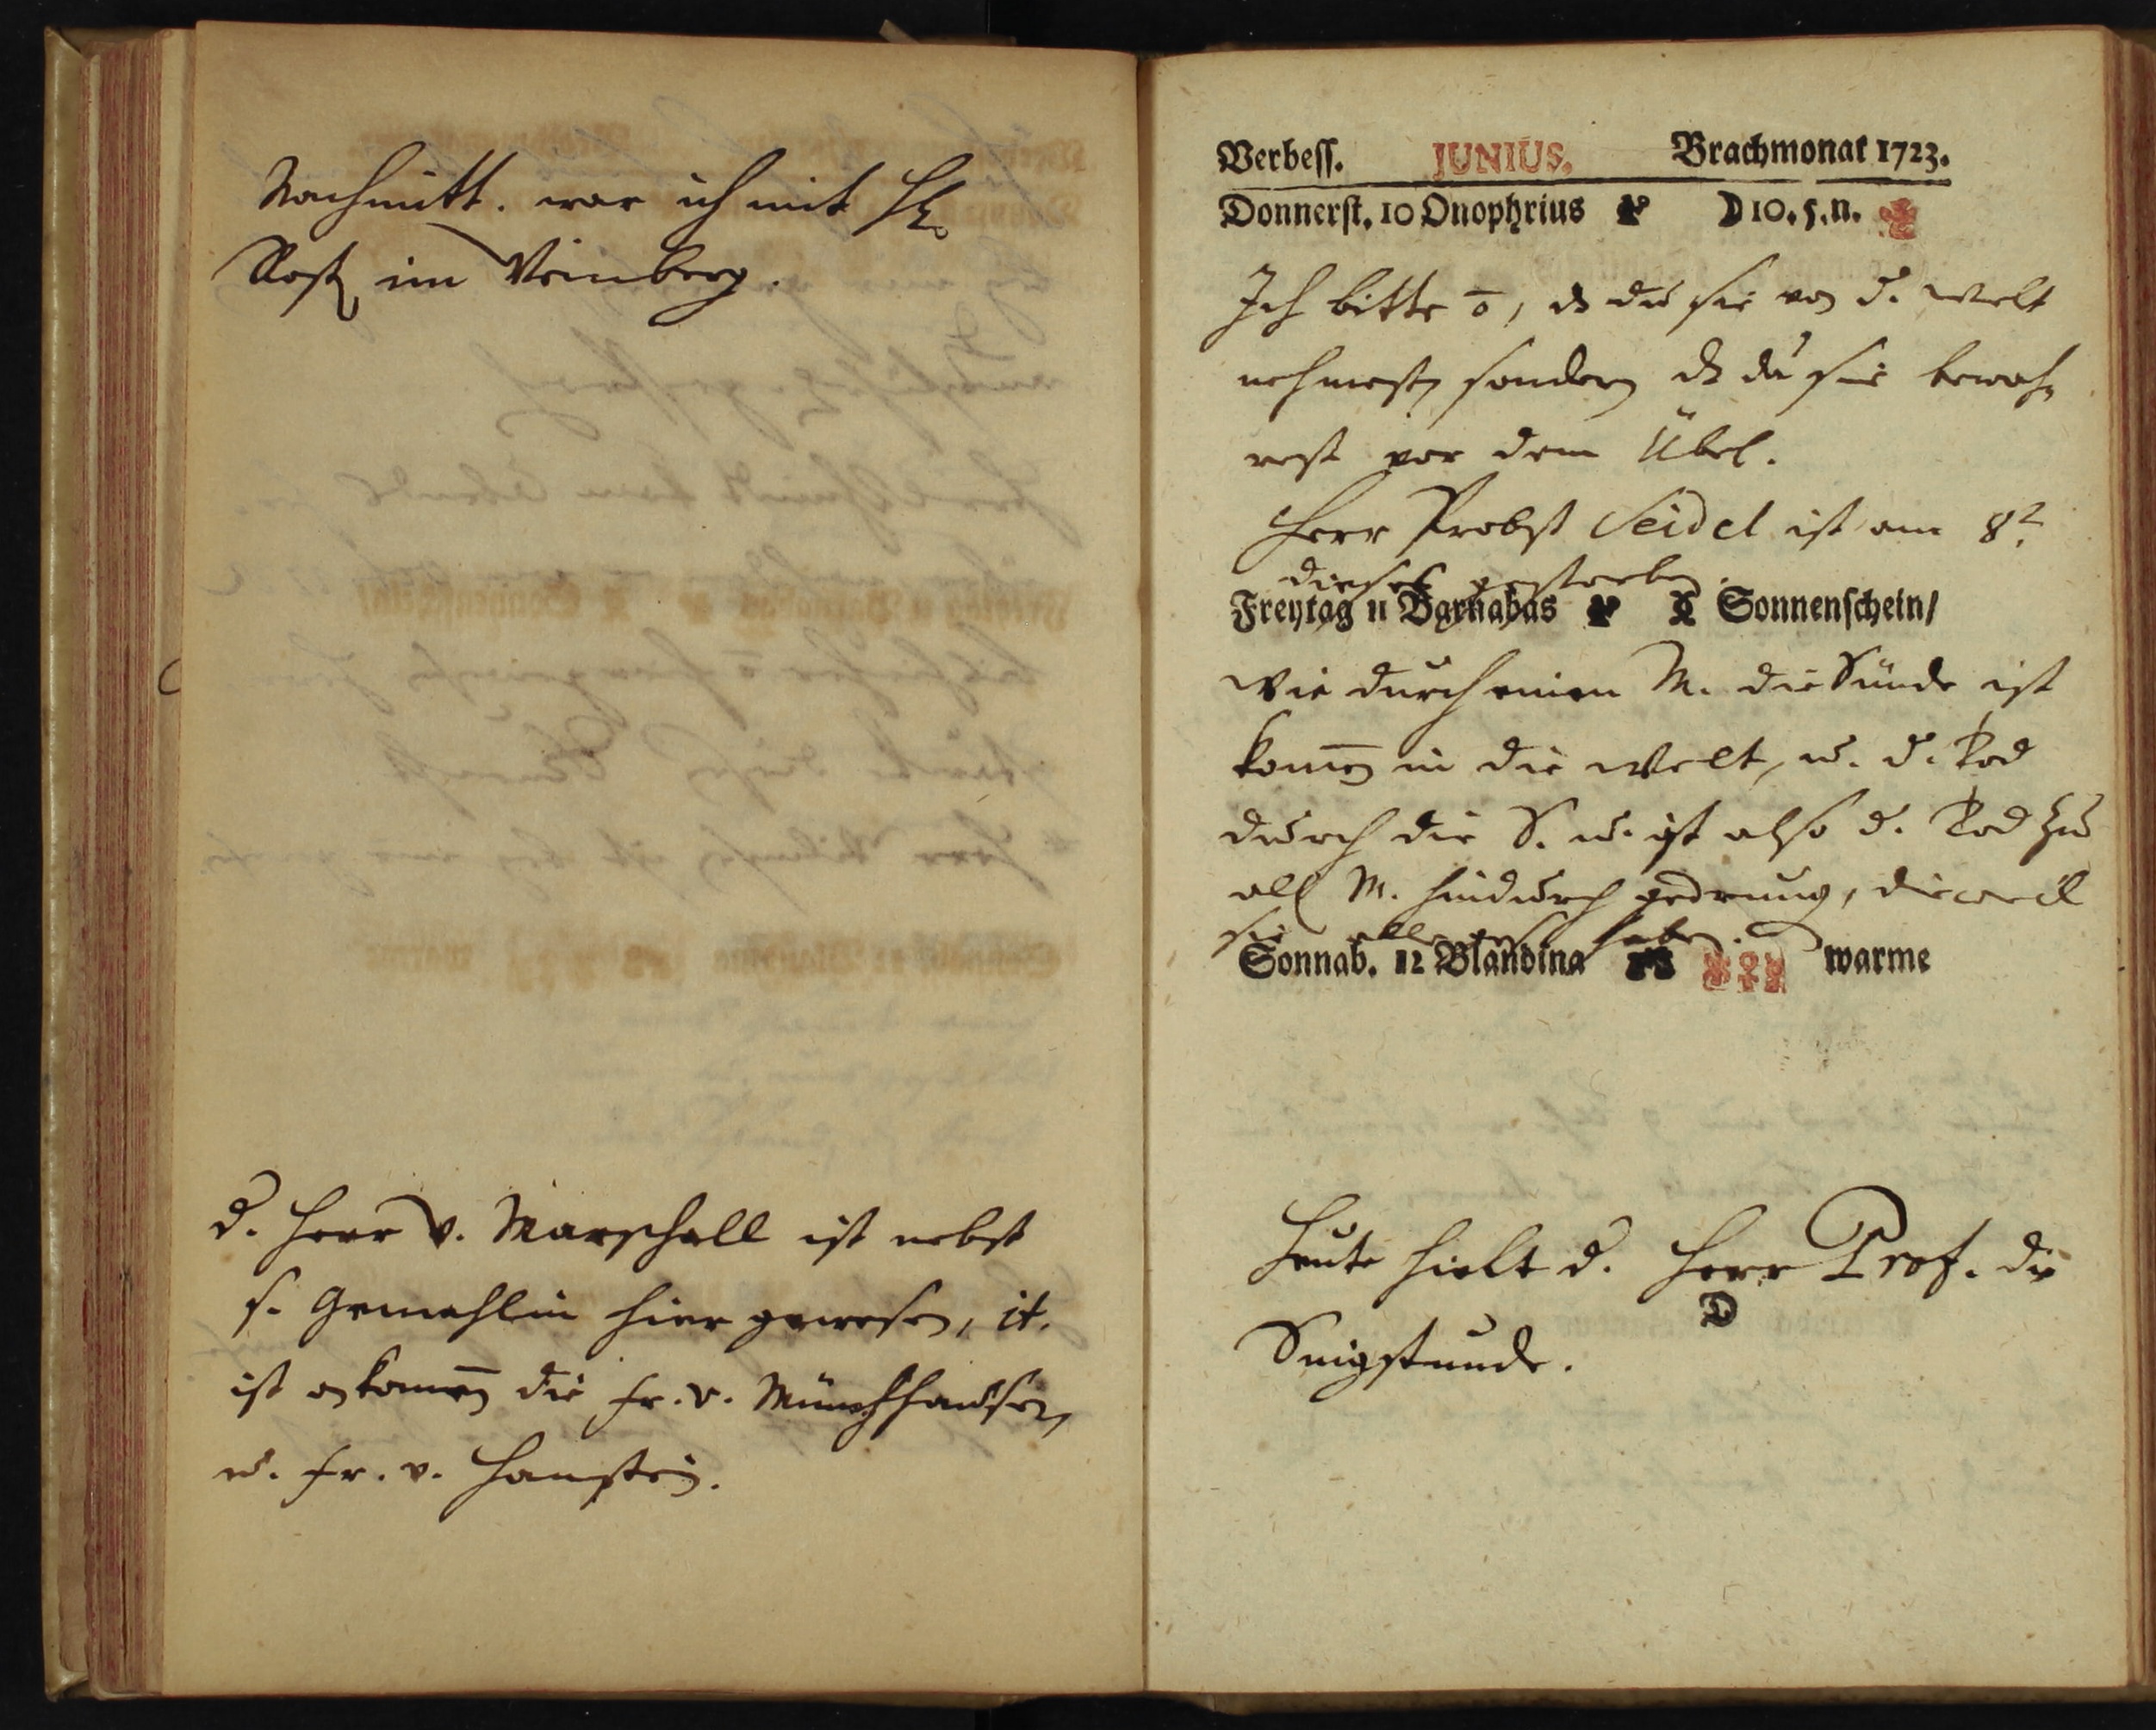 Nachmitt. war ich mit H.
Rost im Weinberg.
d. Herr v. Marschall ist nebst
s. Gemahlin hier gewesen, it.
ist ankom̄en die Fr. v. Münchhausen,
u. Fr. v. Hanstein.
Verbess. JUNIUS. Brachmonat 1723.
Donnerst. 10 Onophrius ☽ 10. 5. n.
Ich bitte ō, dz du sie von d. Welt
nehmest, sondern dz du sie bewah-
rest vor dem Übel.
Herr Probst Seidel ist am 8t.
dieses gestorben.
Freytag 11 Barnabas Sonnenschein/
Wie durch einen M. die Sünde ist
kom̄en in die Welt, u. d. Tod
durch die S. u. ist also d. Tod zu
all M. hindurch gedrung, dieweil
sie alle haben.
Sonnab. 12 Blandina warme
Heute hielt d. Herr Prof. die
D
Singstunde.